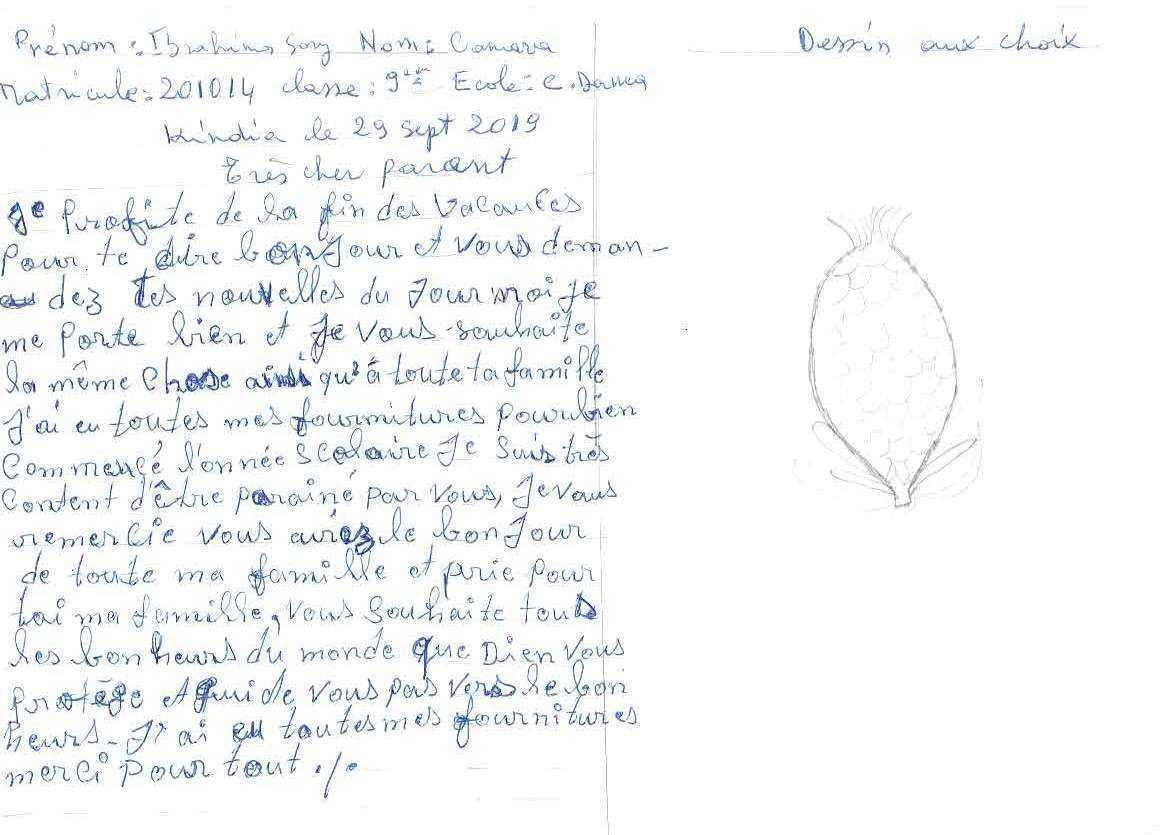 Prénom : Ibrahima Sory Nom : Camara
Matricule : 201014 classe : 9ème Ecole : C. Damca
Kindia le 29 sept 2019
très cher parant
Je Profite de la fin des vacances
Pour te dire bon Jour et vous deman-
dez tes nouvelles du Jour moi Je
me Porte bien et Je vous souhaite
la même chose ainsi qu'à toute ta famille
J'ai eu toutes mes fournitures pour bien
Commencé l'année Scolaire Je suis très
Content d'être parainé par vous, Je vous
remercie vous avez le bon Jour
de toute ma famille et prie Pour
toi ma famille, vous Souhaite tous
les bonheurs du monde que Dieu vous
protège et guide vous pas vers le bon
heurs - J'ai eu toutes mes fournitures
merci pour tout ./.
Dessin aux choix